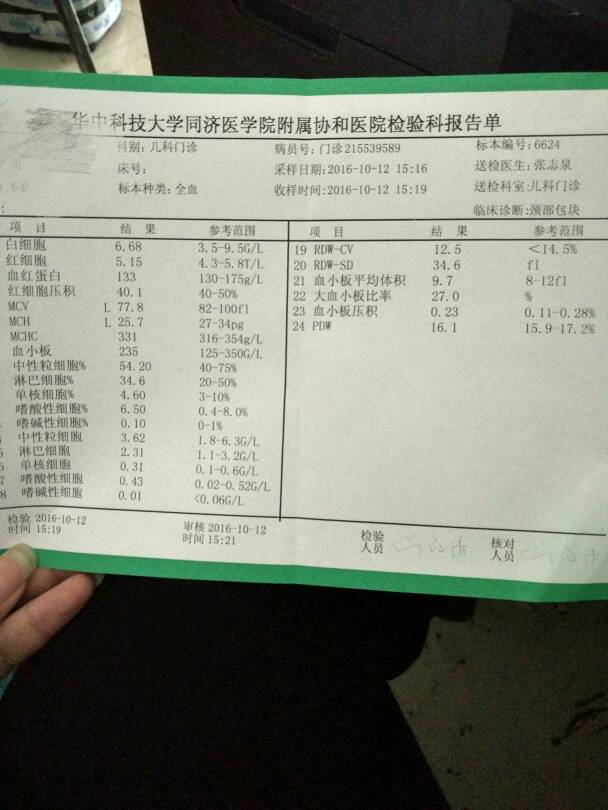 华中科技大学同济医学院附属协和医院检验科报告单
科别:儿科门诊 病员号:门诊215539589 标本编号:6624
床号: 采样日期:2016-10-12 15:16 送检医生:张志泉
: 6岁 标本种类:全血 收样时间:2016-10-12 15:19 送检科室:儿科门诊
临床诊断:颈部包块
项 目 结 果 参考范围
白细胞 6.68 3.5-9.5G/L
红细胞 5.15 4.3-5.8T/L
血红蛋白 133 130-175g/L
红细胞压积 40.1 40-50%
MCV L 77.8 82-100fl
MCH L 25.7 27-34pg
MCHC 331 316-354g/L
血小板 235 125-350G/L
中性粒细胞% 54.20 40-75%
淋巴细胞% 34.6 20-50%
单核细胞% 4.60 3-10%
嗜酸性细胞% 6.50 0.4-8.0%
嗜碱性细胞% 0.10 0-1%
中性粒细胞 3.62 1.8-6.3G/L
淋巴细胞 2.31 1.1-3.2G/L
单核细胞 0.31 0.1-0.6G/L
7 嗜酸性细胞 0.43 0.02-0.52G/L
8 嗜碱性细胞 0.01 <0.06G/L
项 目 结 果 参考范围
19 RDW-CV 12.5 <14.5%
20 RDW-SD 34.6 fl
21 血小板平均体积 9.7 8-12fl
22 大血小板比率 27.0 %
23 血小板压积 0.23 0.11-0.28%
24 PDW 16.1 15.9-17.2%
检验 2016-10-12
时间 15:19
审核 2016-10-12
时间 15:21
检验
人员
核对
人员